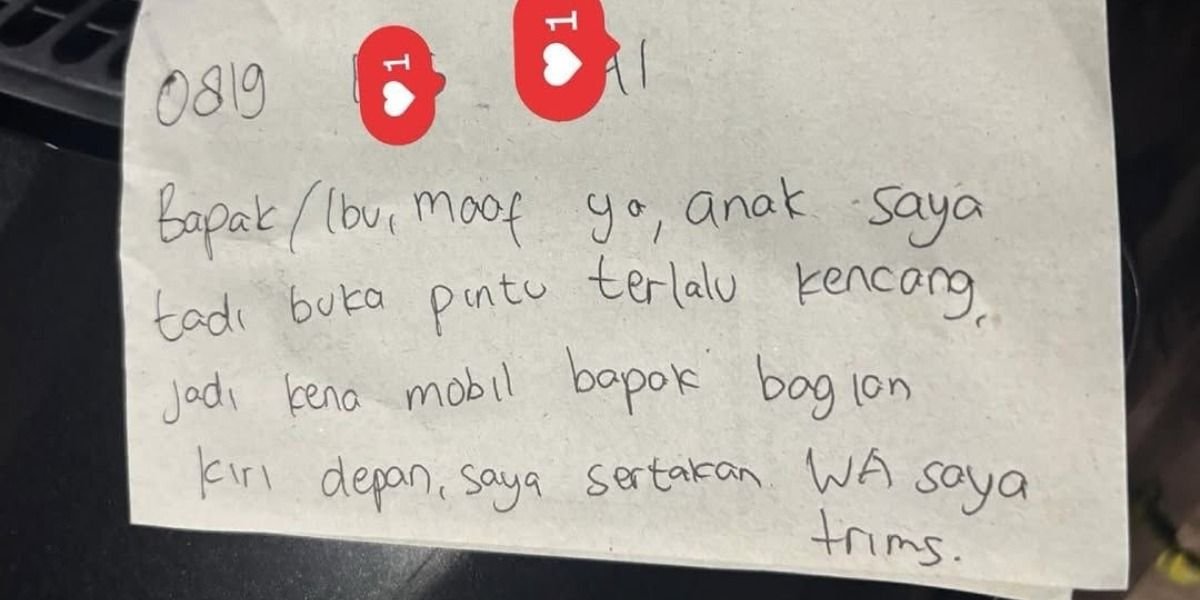 0819
1
1
Bapak/Ibu, maaf ya, anak saya
tadi buka pintu terlalu kencang,
jadi kena mobil bapak bagian
kiri depan, saya sertakan WA saya
trims.